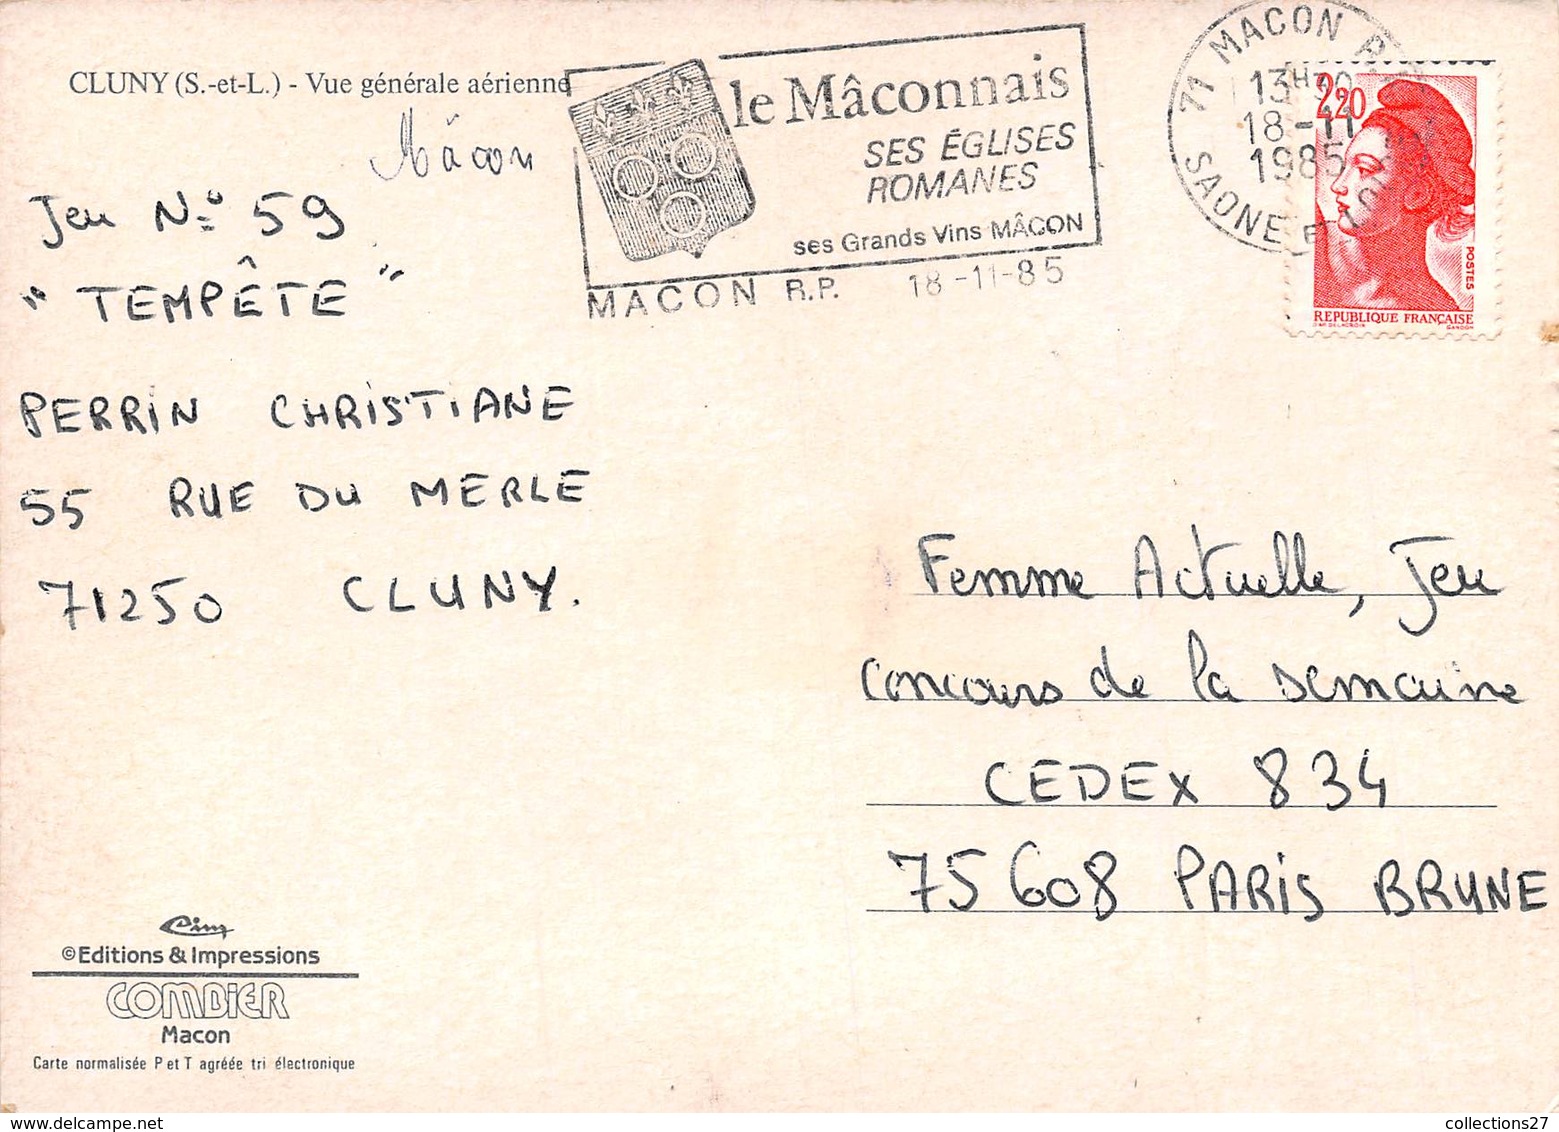 CLUNY (S.-et-L.) - Vue générale aérienne
Mâcon
Jeu N° 59
"TEMPÊTE"
PERRIN CHRISTIANE
55 RUE DU MERLE
71250 CLUNY.
le Mâconnais
SES ÉGLISES
ROMANES
ses Grands Vins MÂCON
MACON R.P. 18-11-85
71 MACON
13H
18-11
1985
SAONE ET
2,20
POSTES
REPUBLIQUE FRANÇAISE
D'AP. DELACROIX GANDON
Femme Actuelle, Jeu
concours de la semaine
CEDEX 834
75608 PARIS BRUNE
Cim
©Editions & Impressions
COMBIER
Macon
Carte normalisée P et T agréée tri électronique
collections27